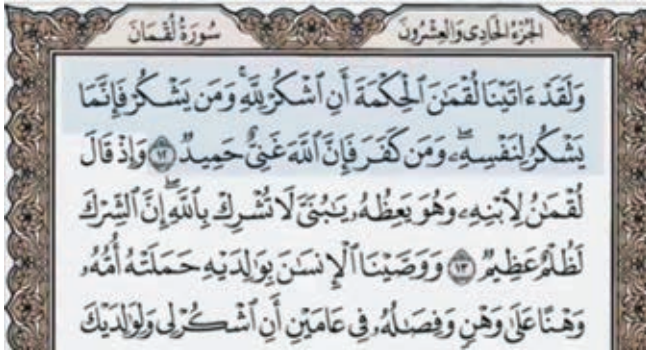 الجزء الحادى والعشرون
سورة لقمان
وَلَقَدْ ءَاتَيْنَا لُقْمَٰنَ ٱلْحِكْمَةَ أَنِ ٱشْكُرْ لِلَّهِۚ وَمَن يَشْكُرْ فَإِنَّمَا
يَشْكُرُ لِنَفْسِهِۦۖ وَمَن كَفَرَ فَإِنَّ ٱللَّهَ غَنِىٌّ حَمِيدٌ ١٢ وَإِذْ قَالَ
لُقْمَٰنُ لِٱبْنِهِۦ وَهُوَ يَعِظُهُۥ يَٰبُنَىَّ لَا تُشْرِكْ بِٱللَّهِۖ إِنَّ ٱلشِّرْكَ
لَظُلْمٌ عَظِيمٌ ١٣ وَوَصَّيْنَا ٱلْإِنسَٰنَ بِوَٰلِدَيْهِ حَمَلَتْهُ أُمُّهُۥ
وَهْنًا عَلَىٰ وَهْنٍ وَفِصَٰلُهُۥ فِى عَامَيْنِ أَنِ ٱشْكُرْ لِى وَلِوَٰلِدَيْكَ